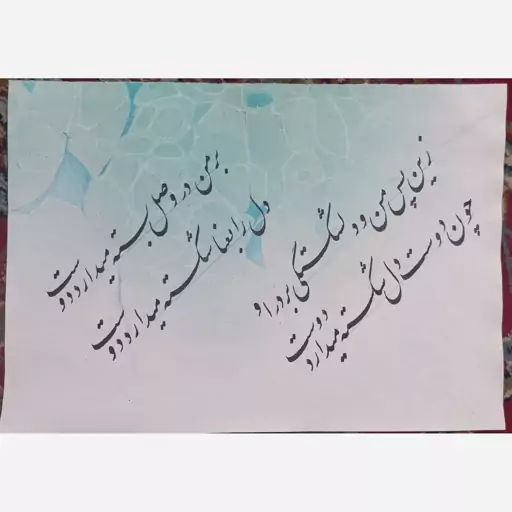 بر من در وصل بسته میدارد دوست
دل را بعنا شکسته میدارد دوست
زین پس من و دلشکستگی بر در او
چون دوست دل شکسته میدارد دوست